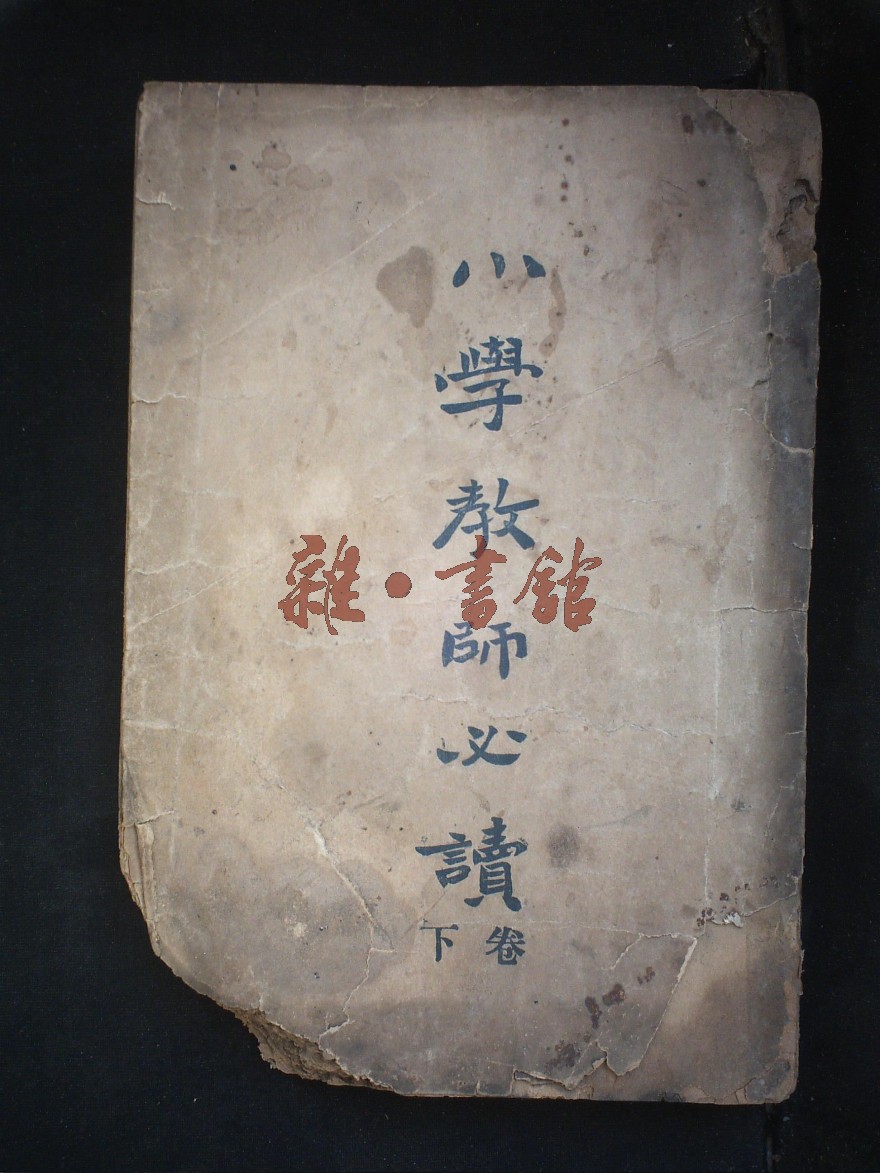 小學教師必讀
卷下
雜·書館